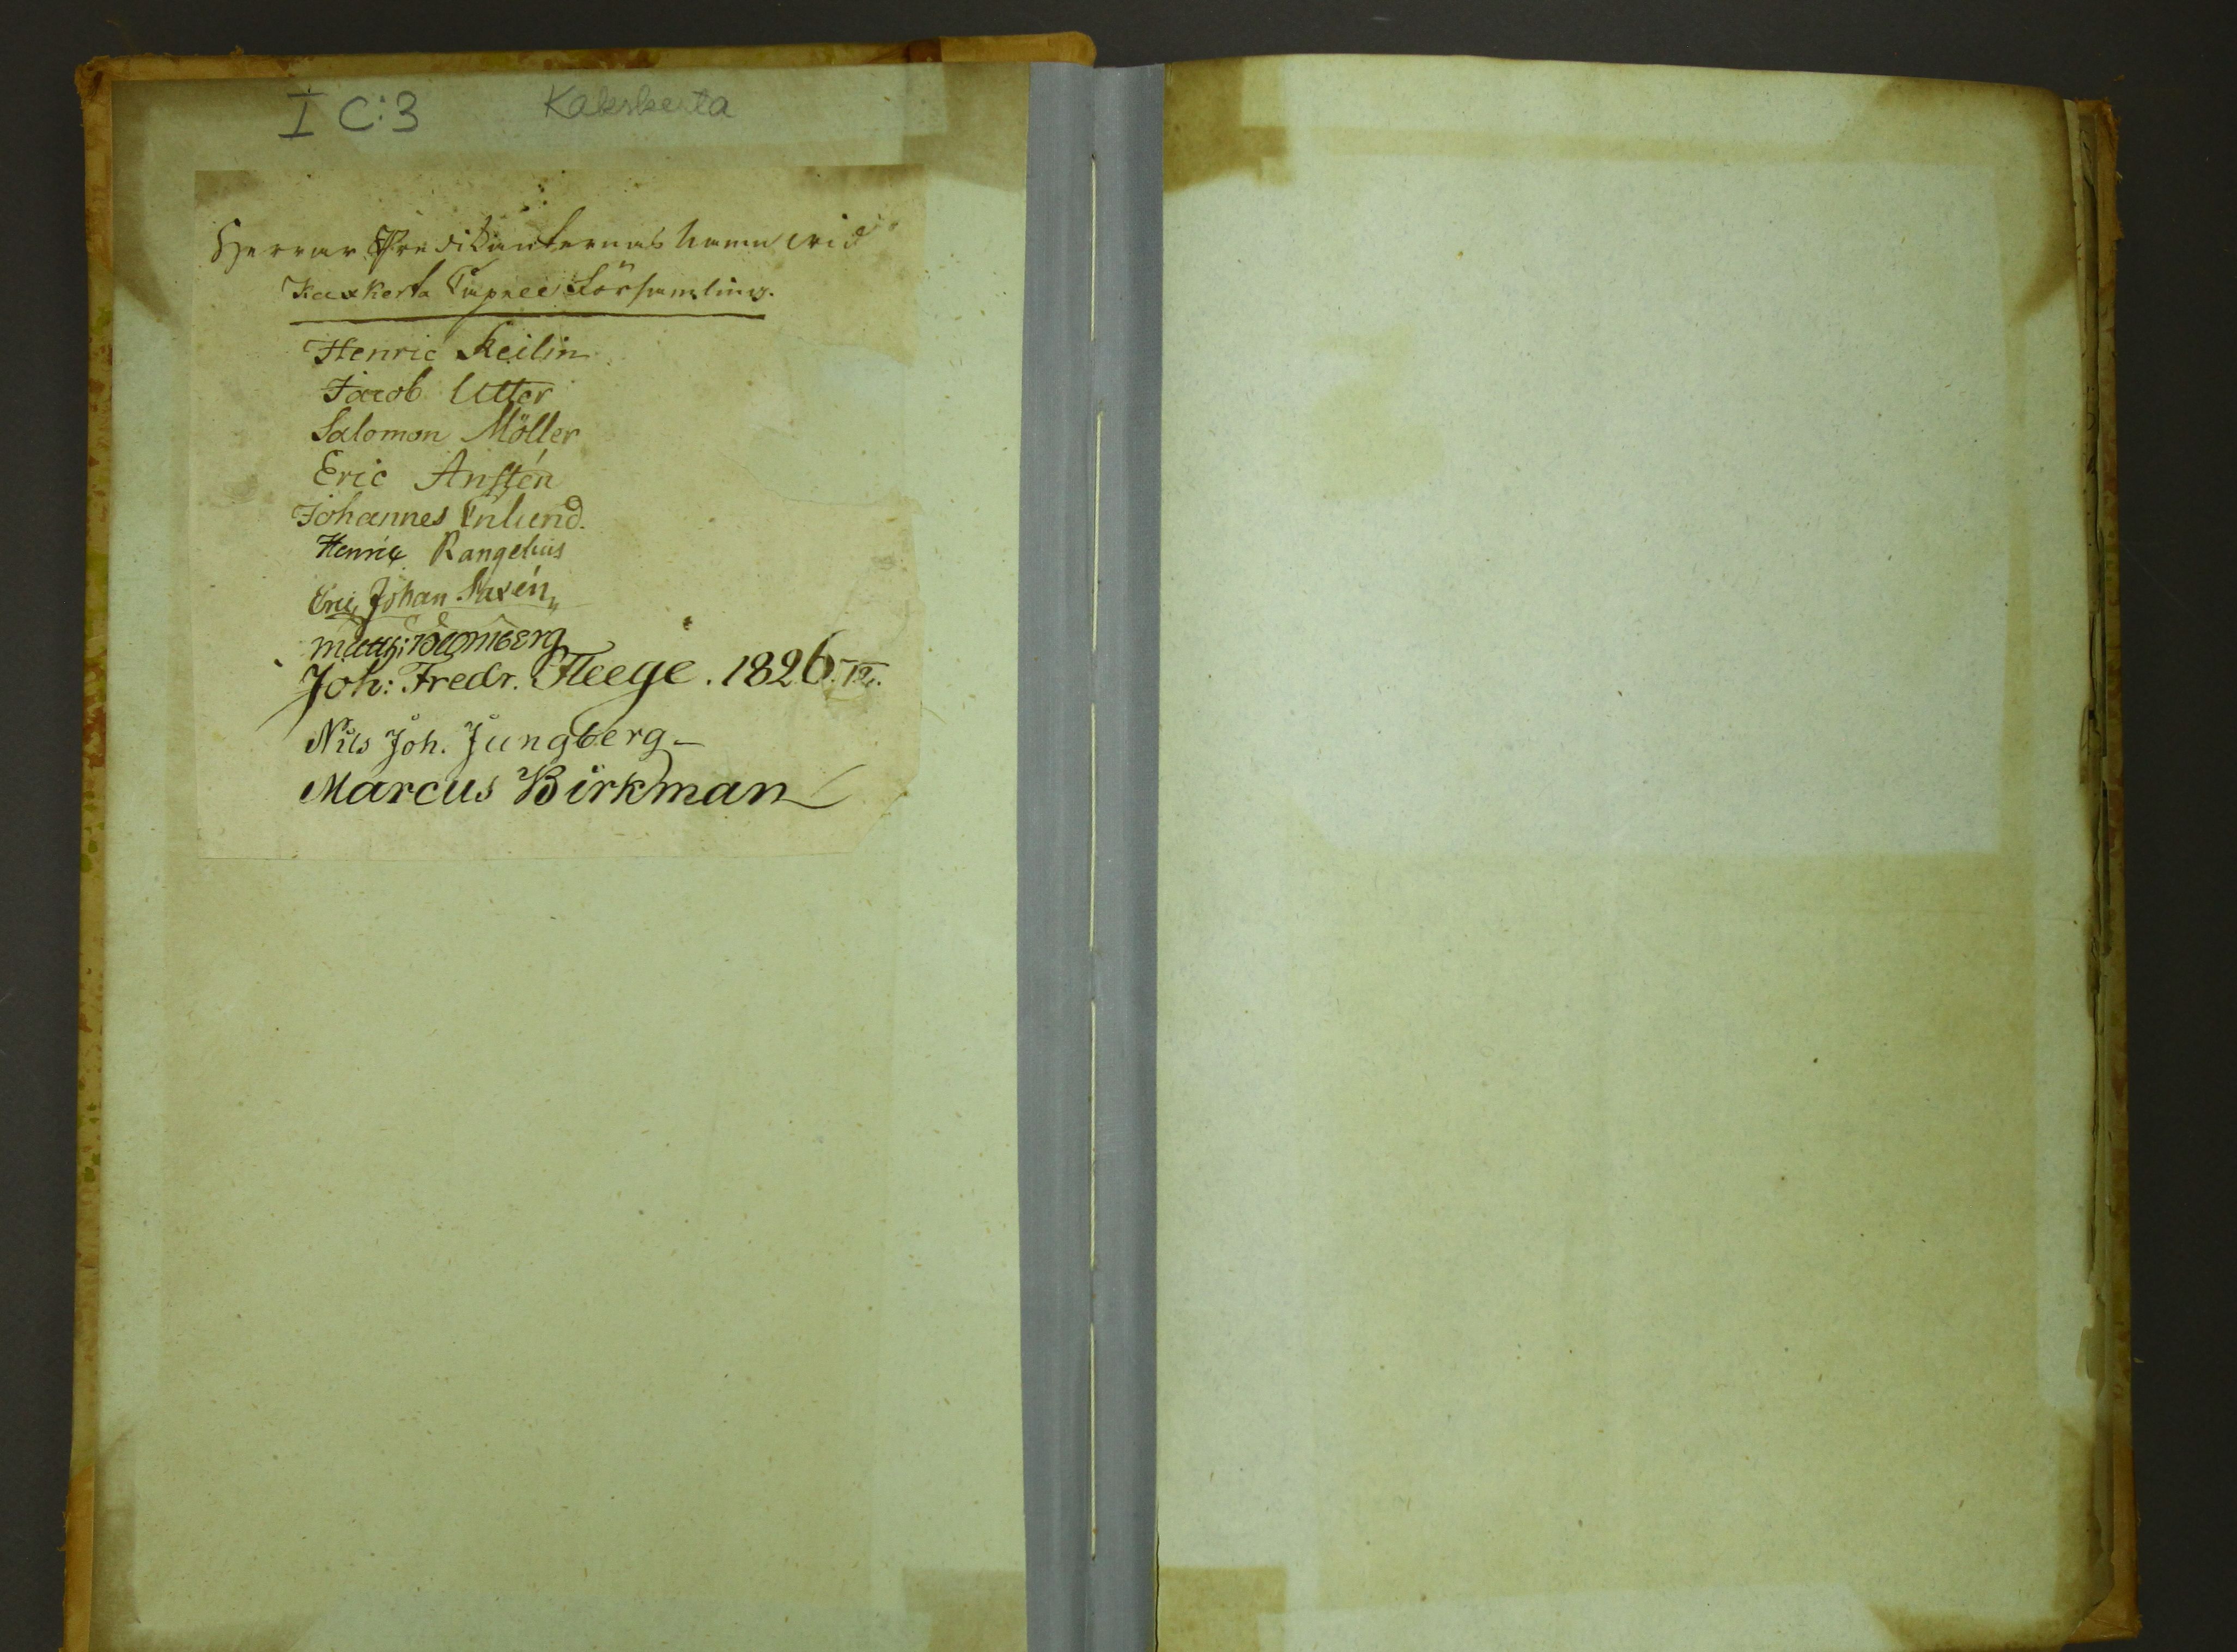 I C:3 Kakskerta
Herrar Predikanternas Namn wid
Kaxkerta Capell Församling.
Henric Keilin
Jacob Utter
Salomon Möller
Eric Anstén
Johannes Enlund.
Henric Rangelius
Eric Johan Saxén
Matth: Blomberg
Joh: Fredr. Fleege. 1826.
Nils Joh. Jungberg
Marcus Birkman